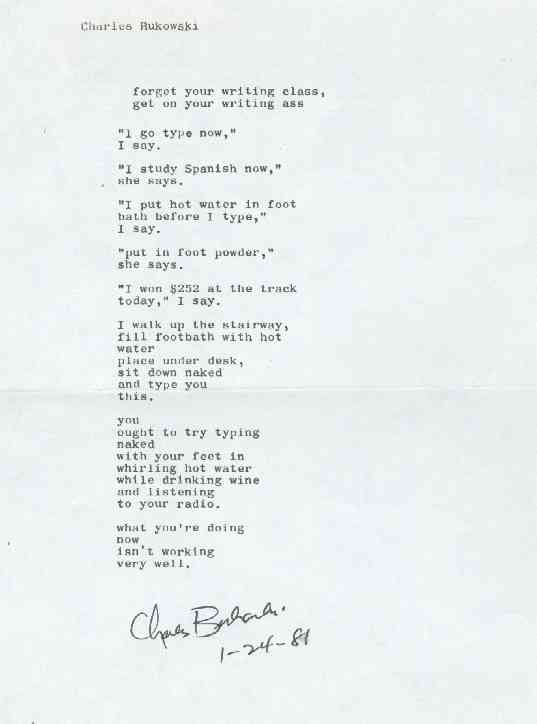 Charles Bukowski
forget your writing class,
get on your writing ass
"I go type now,"
I say.
"I study Spanish now,"
she says.
"I put hot water in foot
bath before I type,"
I say.
"put in foot powder,"
she says.
"I won $252 at the track
today," I say.
I walk up the stairway,
fill footbath with hot
water
place under desk,
sit down naked
and type you
this.
you
ought to try typing
naked
with your feet in
whirling hot water
while drinking wine
and listening
to your radio.
what you're doing
now
isn't working
very well.
Charles Bukowski.
1-24-81